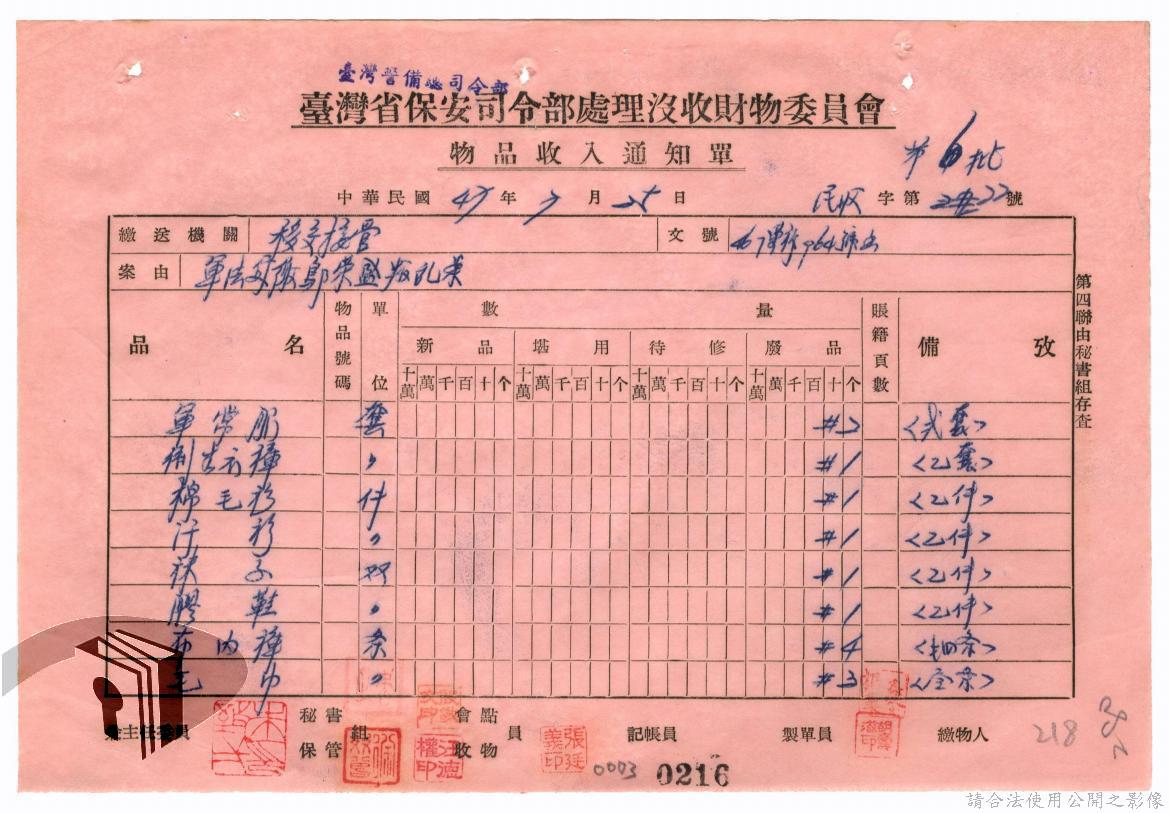 臺灣警備總司令部
臺灣省保安司令部處理沒收財物委員會
物品收入通知單
第6批
中華民國 47 年 月 25 日 民收 字第 號
繳送機關 移交接管 文號
案由 軍法 叛亂案
品名 物品號碼 單位 數量 賬籍頁數 備攷
新品 堪用 待修 廢品
十萬 萬 千 百 十 个 十萬 萬 千 百 十 个 十萬 萬 千 百 十 个 十萬 萬 千 百 十 个
軍常服 套 #2 <弍套>
衛生衣褲 〃 #1 <乙套>
棉毛衫 件 #1 <乙件>
汗衫 〃 #1 <乙件>
袜子 双 #1 <乙件>
膠鞋 〃 #1 <乙件>
布內褲 条 #4 <肆条>
毛巾 〃 #3 <叁条>
第四聯由秘書組存查
主任委員 秘書 保管 組 會點 收物 員 記帳員 製單員 繳物人
張廷義印
0003 0216
218
請合法使用公開之影像